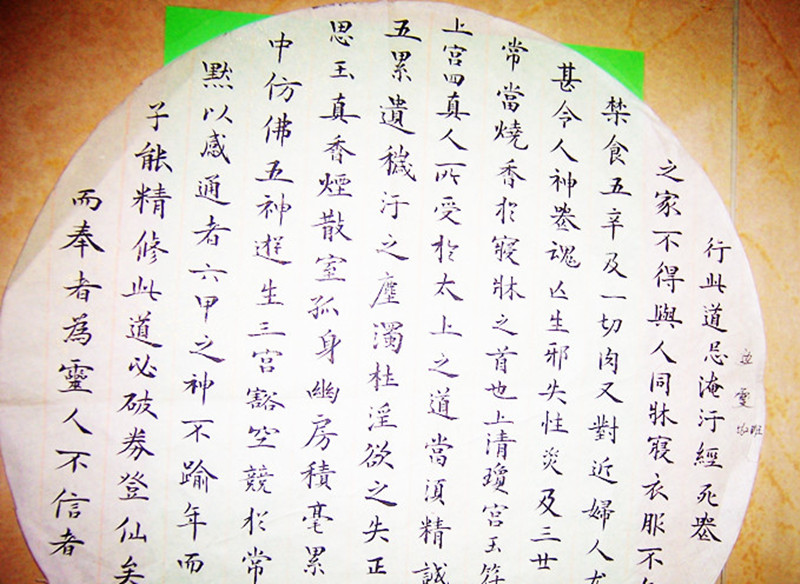 行此道忌淹汙經死喪
之家不得與人同牀寢衣服不
禁食五辛及一切肉又對近婦人尤
甚令人神喪魂亡生邪失性災及三世
常當燒香於寢牀之首也上清瓊宮玉符
上宮四真人所受於太上之道當須精誠
五累遺穢汙之塵濁杜淫欲之失正
思玉真香煙散室孤身幽房積毫累
中仿佛五神遊生三宮豁空競於常
默以感通者六甲之神不踰年而
子能精修此道必破券登仙矣
而奉者為靈人不信者